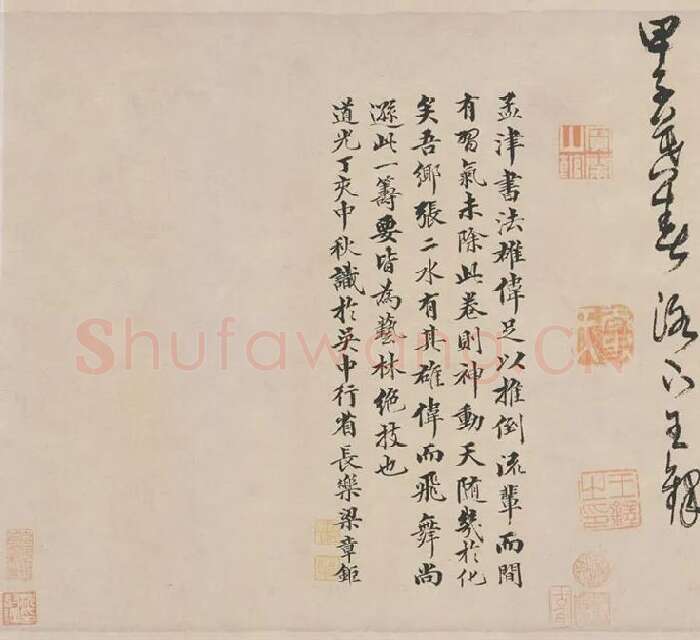 洛下王鐸
王鐸之印
孟津書法雄偉足以推倒流輩而間
有習氣未除此卷則神動天隨幾於化
矣吾鄉張二水有其雄偉而飛舞尚
遜此一籌要皆為藝林絕技也
道光丁亥中秋識於吳中行省長樂梁章鉅
Shufawang.CN